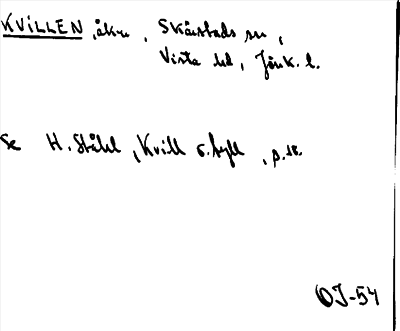 KVILLEN, åkru, Skärstads sn,
Vista hd, Jönk. l.
Se H. Ståhl, Kvill o. hyll, p. 18.
OJ-54